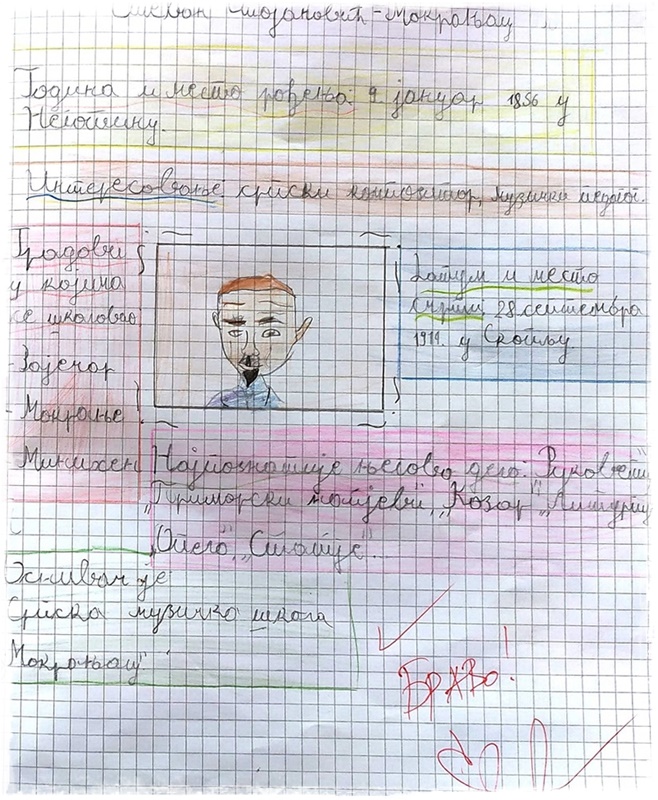 Стеван Стојановић-Мокрањац
Година и место рођења: 9. јануар 1856 у
Неготину.
Интересовање: српски композитор, музички педагог.
Градови
у којима
се школовао
-Зајечар
-Мокрање
Минхен
Датум и место
смрти: 28. септембра
1914. у Скопљу.
Најпознатије његово дело: „Руковети"
„Приморски напјеви", „Козар", „Литургија
„Опело", „Статије".
Оснивач је
Српска музичка школа
Мокрањац"
БРАВО!